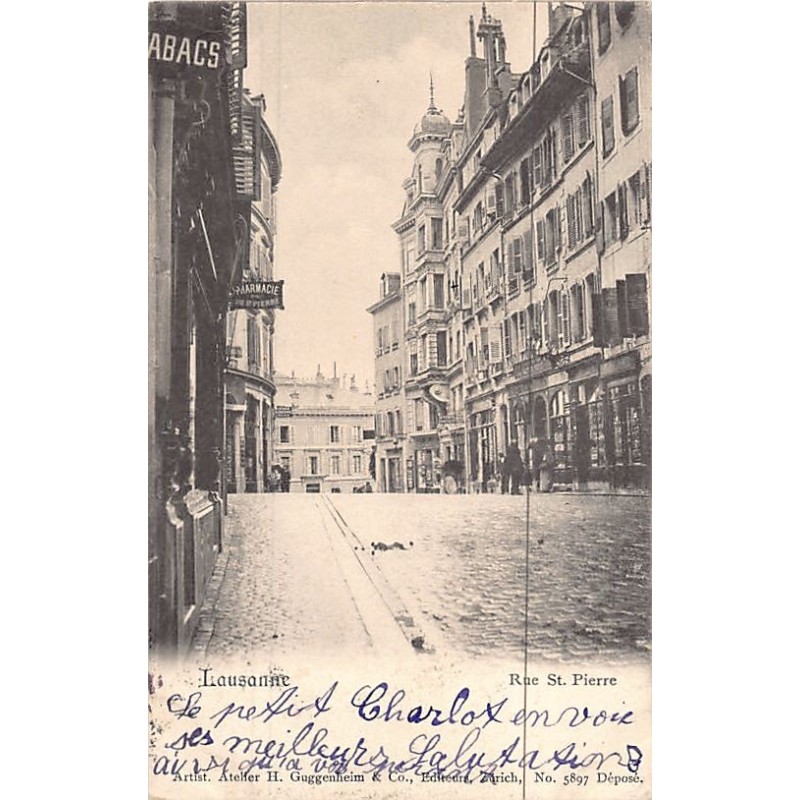 ABACS
PHARMACIE
ST PIERRE
Lausanne
Rue St. Pierre
Le petit Charlot envoie
ses meilleurs Salutations
Artist. Atelier H. Guggenheim & Co., Editeurs, Zürich, No. 5897 Déposé.